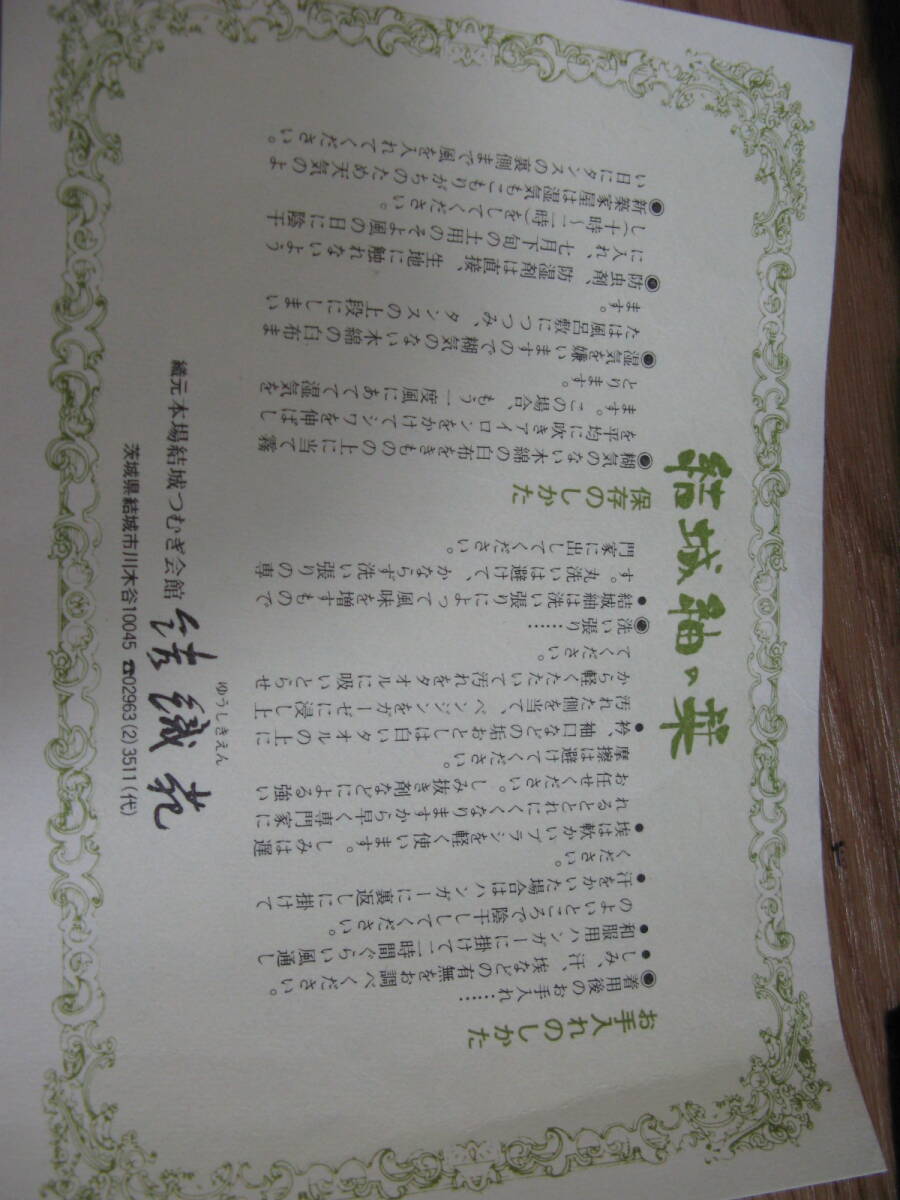 結城紬の栞
お手入れのしかた
◉着用後のお手入れ……
•しみ、汗、埃などの有無をお調べください。
•和服用ハンガーに掛けて一時間ぐらい風通し
のよいところで陰干ししてください。
•汗をかいた場合はハンガーに裏返しに掛けて
ください。
•埃は軟かいブラシを軽く使います。しみは遅
れるととれにくくなりますから早く専門家に
お任せください。しみ抜き剤などによる強い
摩擦は避けてください。
•衿、袖口などの垢おとしは白いタオルの上に
汚れた側を当て、ベンジンをガーゼに浸し上
から軽くたたいて汚れをタオルに吸いとらせ
てください。
◉洗い張り……
•結城紬は洗い張りによって風味を増すもので
す。丸洗いは避けて、かならず洗い張りの専
門家に出してください。
保存のしかた
◉糊気のない木綿の白布をきものの上に当て霧
を平均に吹きアイロンをかけてシワを伸ばし
ます。この場合、もう一度風にあてて湿気を
とります。
◉湿気を嫌いますので糊気のない木綿の白布ま
たは風呂敷につつみ、タンスの上段にしまい
ます。
◉防虫剤、防湿剤は直接、生地に触れないよう
に入れ、七月下旬の土用のそよ風の日に陰干
し(十時〜二時)をしてください。
◉新築家屋は湿気もこもりがちのため天気のよ
い日にタンスの裏側まで風を入れてください。
織元本場結城つむぎ会館
ゆうしきえん
結織苑
茨城県結城市川木谷10045 ☎02963(2)3511(代)